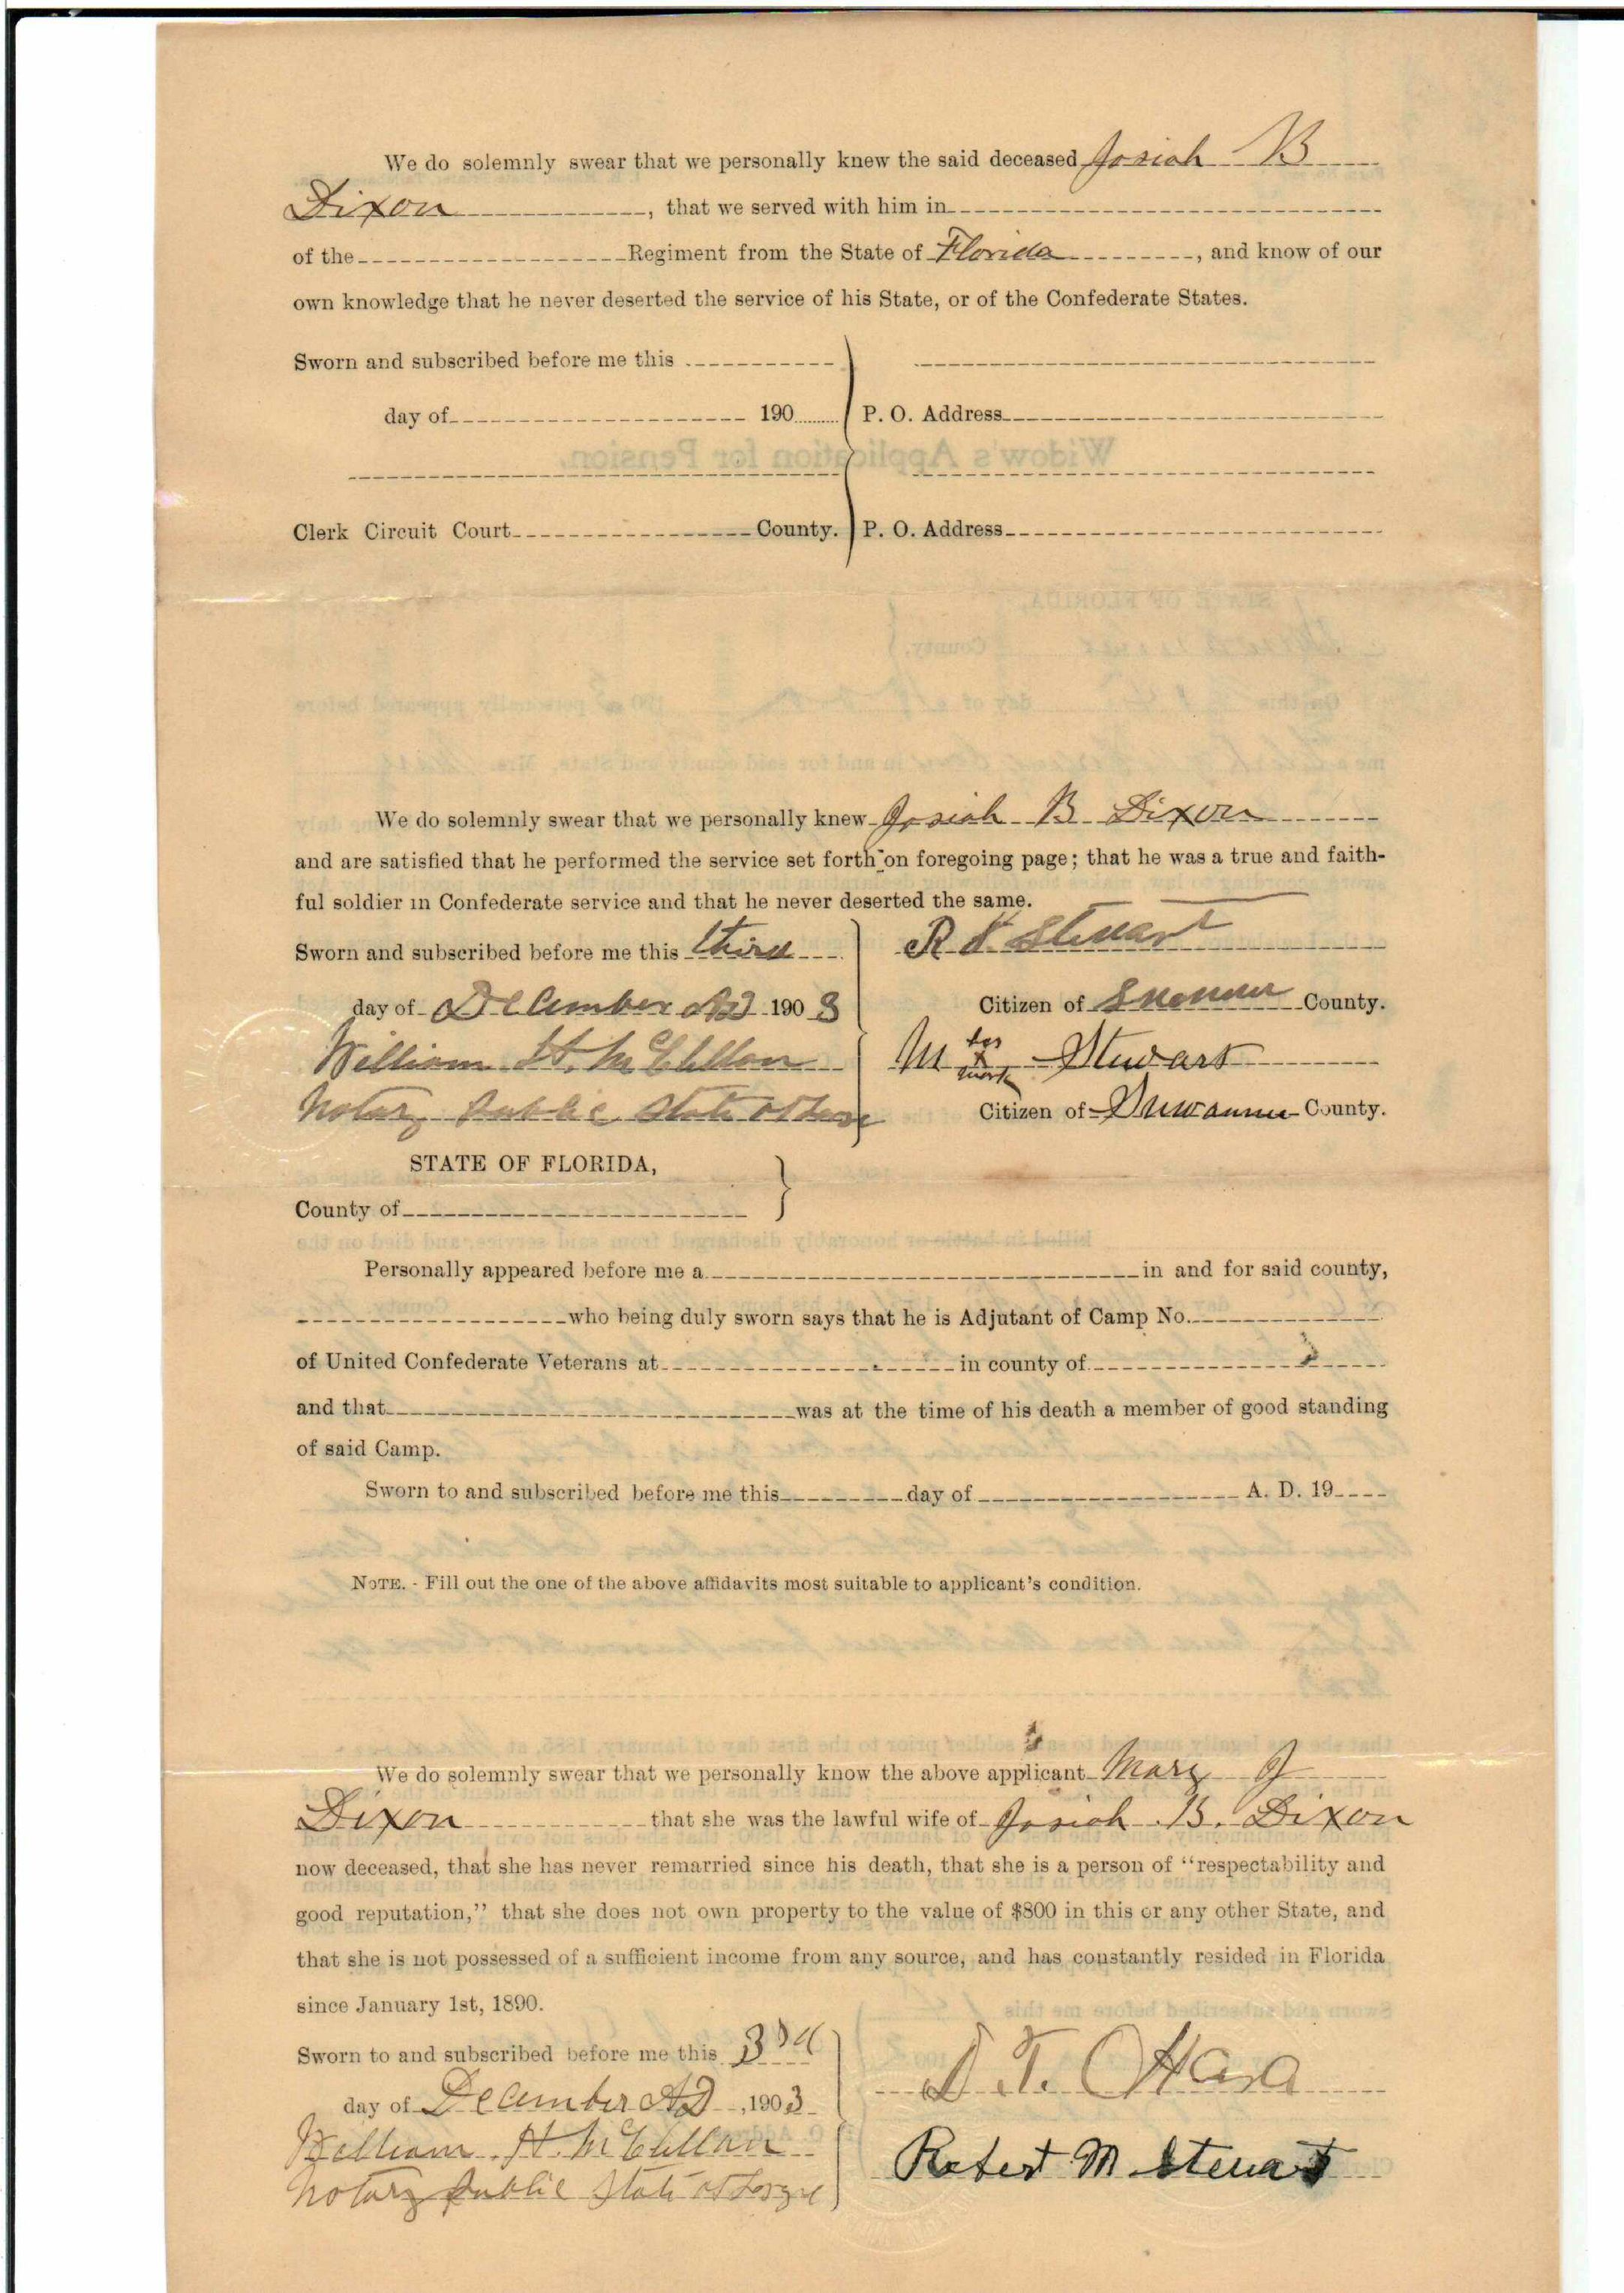 We do solemnly swear that we personally knew the said deceased Josiah B
Dixon, that we served with him in
of the Regiment from the State of Florida, and know of our
own knowledge that he never deserted the service of his State, or of the Confederate States.
Sworn and subscribed before me this
day of 190 P. O. Address
Widow's Application for Pension.
Clerk Circuit Court County. P. O. Address
STATE OF FLORIDA,
County.
We do solemnly swear that we personally knew Josiah B Dixon
and are satisfied that he performed the service set forth on foregoing page; that he was a true and faith-
ful soldier in Confederate service and that he never deserted the same.
Sworn and subscribed before me this third R Stewart
day of December AD 1903 Citizen of County.
William H. McClellan M his x mark Stewart
Notary Public State at Large Citizen of Suwannee County.
STATE OF FLORIDA,
County of
killed in battle or honorably discharged from said service, and died on the
Personally appeared before me a in and for said county,
who being duly sworn says that he is Adjutant of Camp No.
of United Confederate Veterans at in county of
and that was at the time of his death a member of good standing
of said Camp.
Sworn to and subscribed before me this day of A. D. 19
NOTE. - Fill out the one of the above affidavits most suitable to applicant's condition.
We do solemnly swear that we personally know the above applicant Mary J
Dixon that she was the lawful wife of Josiah B. Dixon
now deceased, that she has never remarried since his death, that she is a person of "respectability and
good reputation," that she does not own property to the value of $800 in this or any other State, and
that she is not possessed of a sufficient income from any source, and has constantly resided in Florida
since January 1st, 1890.
Sworn to and subscribed before me this 3rd D. T. OHara
day of December AD, 1903
William H. McClellan Robert M Stewart
Notary Public State at Large